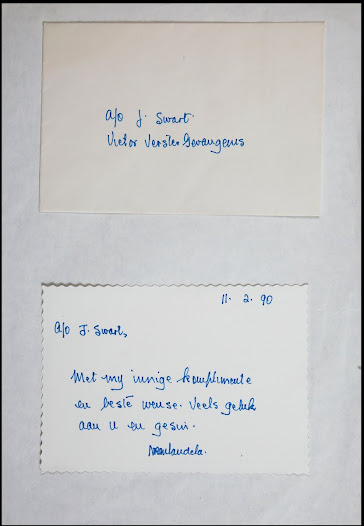 a/o J. Swart.
Victor Verster Gevangenis
11. 2. 90
a/o J. Swart,
Met my innige komplimente
en beste wense. Veels geluk
aan u en gesin.
NMandela.